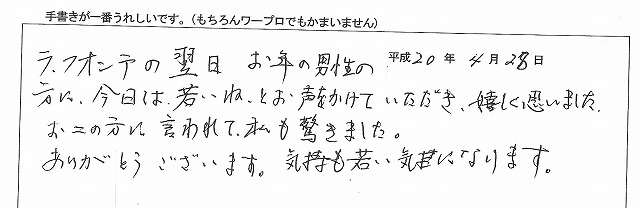 手書きが一番うれしいです。(もちろんワープロでもかまいません)
平成20年4月28日
ラ・フォンテの翌日 お年の男性の
方に、今日は、若いね、とお声をかけていただき、嬉しく思いました。
お二の方に言われて、私も驚きました。
ありがとうございます。気持も若い気持になります。